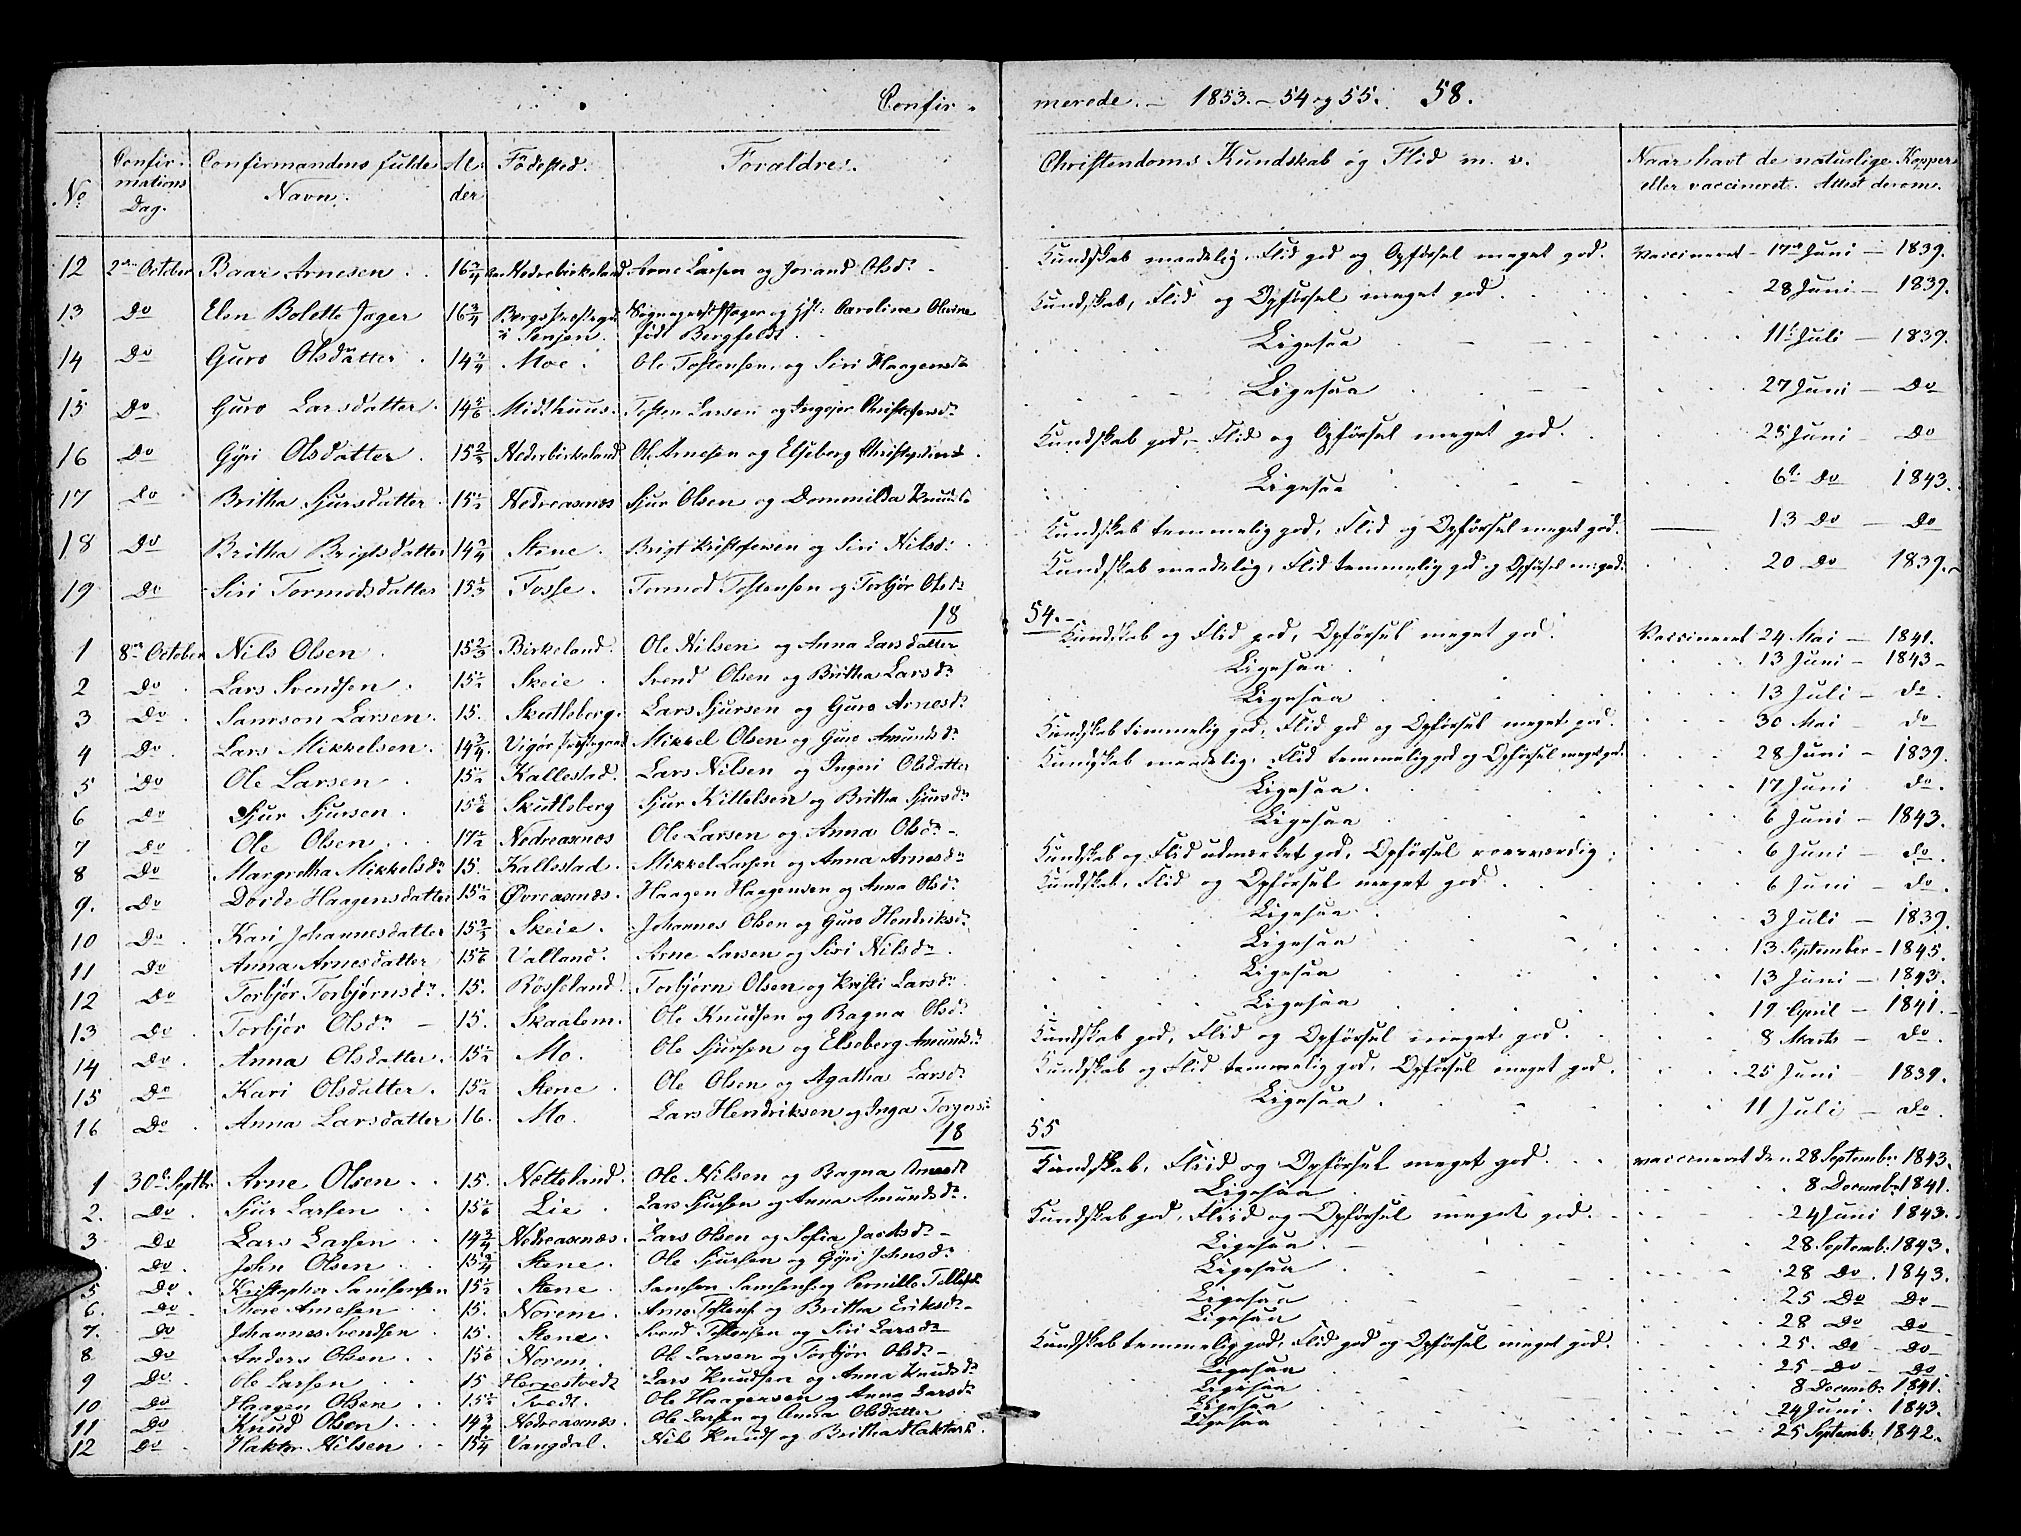 Confir-
merede. - 1853. - 54 og 55. 58.
No Confirmations Dag. Confirmandens fulde Navn. Alder Födested. Foraldre. Christendoms Kundskab og Flid m. v. Naar havt de naturlige Kopper eller vaccineret. Attest derom.
12 2den October Baar Arnesen 16 3/4 Nedrebirkeland Arne Larsen og Jorand Olsdr Kundskab maadelig, Flid god og Opförsel meget god. Vaccineret - 17de Juni - 1839.
13 Do Elen Bolette Jager 16 3/4 Bergs Præstegd Jager og Caroline Olivine Kundskab, Flid og Opförsel meget god. 28 Juni - 1839.
i Senjen. född Bergfeldt
14 Do Guro Olsdatter 14 3/4 Moe Ole Tostensen og Siri Haagensdr Ligesaa 11te Juli - 1839.
15 Do Guro Larsdatter 14 5/6 Midthuus Tosten Larsen og Ingejer Christofersdr Ligesaa 27 Juni - Do
16 Do Gyri Olsdatter 15 2/3 Nederbirkeland Ole Arnesen og Elseberg Kundskab god, Flid og Opförsel meget god. 25 Juni - Do
17 Do Britha Sjursdatter 15 1/2 Nedreasnæs Sjur Olsen og Dommilda Knudsdr Ligesaa 6te Do 1843.
18 Do Britha Brigtsdatter 14 3/4 Stene Brigt Kristofersen og Siri Nilsdr Kundskab temmelig god, Flid og Opförsel meget god. 13 Do - Do
19 Do Siri Tormodsdatter 15 1/3 Fosse Tormod Tostensen og Torbjør Olsdr Kundskab maadelig, Flid temmelig god og Opförsel m. god. 20 Do 1839.
18 54.
1 8de October Nils Olsen 15 2/3 Birkeland Ole Nilsen og Anna Larsdatter Kundskab og Flid god, Opförsel meget god. Vaccineret 24 Mai - 1841.
2 Do Lars Svendsen 15 1/2 Skeie Svend Olsen og Britha Larsdr Ligesaa 13 Juni - 1843
3 Do Samson Larsen 15. Skutleberg Lars Sjursen og Guro Arnesdr Ligesaa 13 Juli - do
4 Do Lars Mikkelsen 14 3/4 Vigør Præstegaard Mikkel Olsen og Guro Amundsdr Kundskab temmelig god, Flid god og Opförsel meget god. 30 Mai do
5 Do Ole Larsen 15 1/2 Kallestad Lars Nilsen og Ingeri Olsdatter Kundskab maadelig, Flid temmelig god og Opförsel meget god. 28 Juni - 1839.
6 Do Sjur Sjursen 15 5/6 Skutleberg Sjur Kittelsen og Britha Sjursdr Ligesaa 17 Juni do.
7 Do Ole Olsen 17 1/2 Nedreasnæs Ole Larsen og Anna Olsdr Ligesaa 6 Juni - 1843.
8 Do Margretha Mikkelsdr 15. Kallestad Mikkel Larsen og Anna Arnesdr Kundskab og Flid udmærket god, Opförsel roesværdig 6 Juni - do.
9. Do Dorde Haagensdatter 15 1/2 Øvreasnæs Haagen Haagensen og Anna Olsdr Kundskab, Flid og Opförsel meget god. 6 Juni - do.
10 Do Kari Johannesdatter 15 2/3 Skeie Johannes Olsen og Guro Hendriksdr Ligesaa 3 Juli - 1839.
11 Do Anna Arnesdatter 15 1/6 Valland Arne Larsen og Siri Nilsdr Ligesaa 13 September - 1845.
12 Do Torbjør Torbjørnsdr 15. Rösseland Torbjørn Olsen og Kristi Larsdr Ligesaa 13 Juni - 1843.
13 Do Torbjør Olsdr 15. Skaalem Ole Knudsen og Ragna Olsdr Ligesaa 19 April - 1841.
14 Do Anna Olsdatter 15 1/2 Mo. Ole Sjursen og Elseberg Amundsdr Kundskab god, Flid og Opförsel meget god. 8 Marts - do.
15 Do Kari Olsdatter 15 1/2 Stene Ole Olsen og Agatha Larsdr Kundskab og Flid temmelig god, Opförsel meget god. 25 Juni - 1839.
16 Do Anna Larsdatter 16. Mo. Lars Hendriksen og Inga Torgersdr Ligesaa 11 Juli - do.
18 55
1 30te Septbr Arne Olsen 15. Netteland Ole Nilsen og Ragna Arnesdr Kundskab, Fliid og Opförsel meget god. vaccineret den 28 Septembr 1843.
2. Do Sjur Larsen 15 1/6 Lie Lars Sjursen og Anna Amundsdr Ligesaa 8 Decembr 1841.
3 Do Lars Larsen 14 3/4 Nedreasnæs Lars Olsen og Sofia Jacobsdr Kundskab god, Fliid og Opförsel meget god. 24 Juni 1843.
Do John Olsen 15 3/4 Stene Ole Sjursen og Gyri Johnsdr Ligesaa 28 Septembr 1843.
5 Do Kristopher Samsonsen 15 1/2 Stene Samson Samsons. og Pernille Ligesaa 28 Do. 1843.
6. Do Thore Arnesen 15. Norem Arne Tostens. og Britha Eriksdr Ligesaa 25 Do Do
7. Do Johannes Svendsen 15. Stene Svend Tostensen og Siri Larsdr Ligesaa 28 Do Do
8 Do Anders Olsen 15 1/6 Norem Ole Larsen og Torbjør Olsdr Kundskab temmelig god, Flid god og Opförsel meget god. 25. Do Do
9 Do Ole Larsen 15 Hergestvedt Lars Knudsen og Anna Knudsdr Ligesaa 25 Do Do
10 Do Haagen Olsen 15 1/2 Tvedt Ole Haagensen og Anna Larsdr Ligesaa 8 Decembr 1841.
11 Do Knud Olsen 14 3/4 Nedreasnæs Ole Larsen og Anna Olsdatter Ligesaa 24 Juni 1843.
12 Do Haktor Nilsen 15 1/4 Vangdal Nils Knuds. og Britha Haktorsd. Ligesaa 25 Septembr 1842.